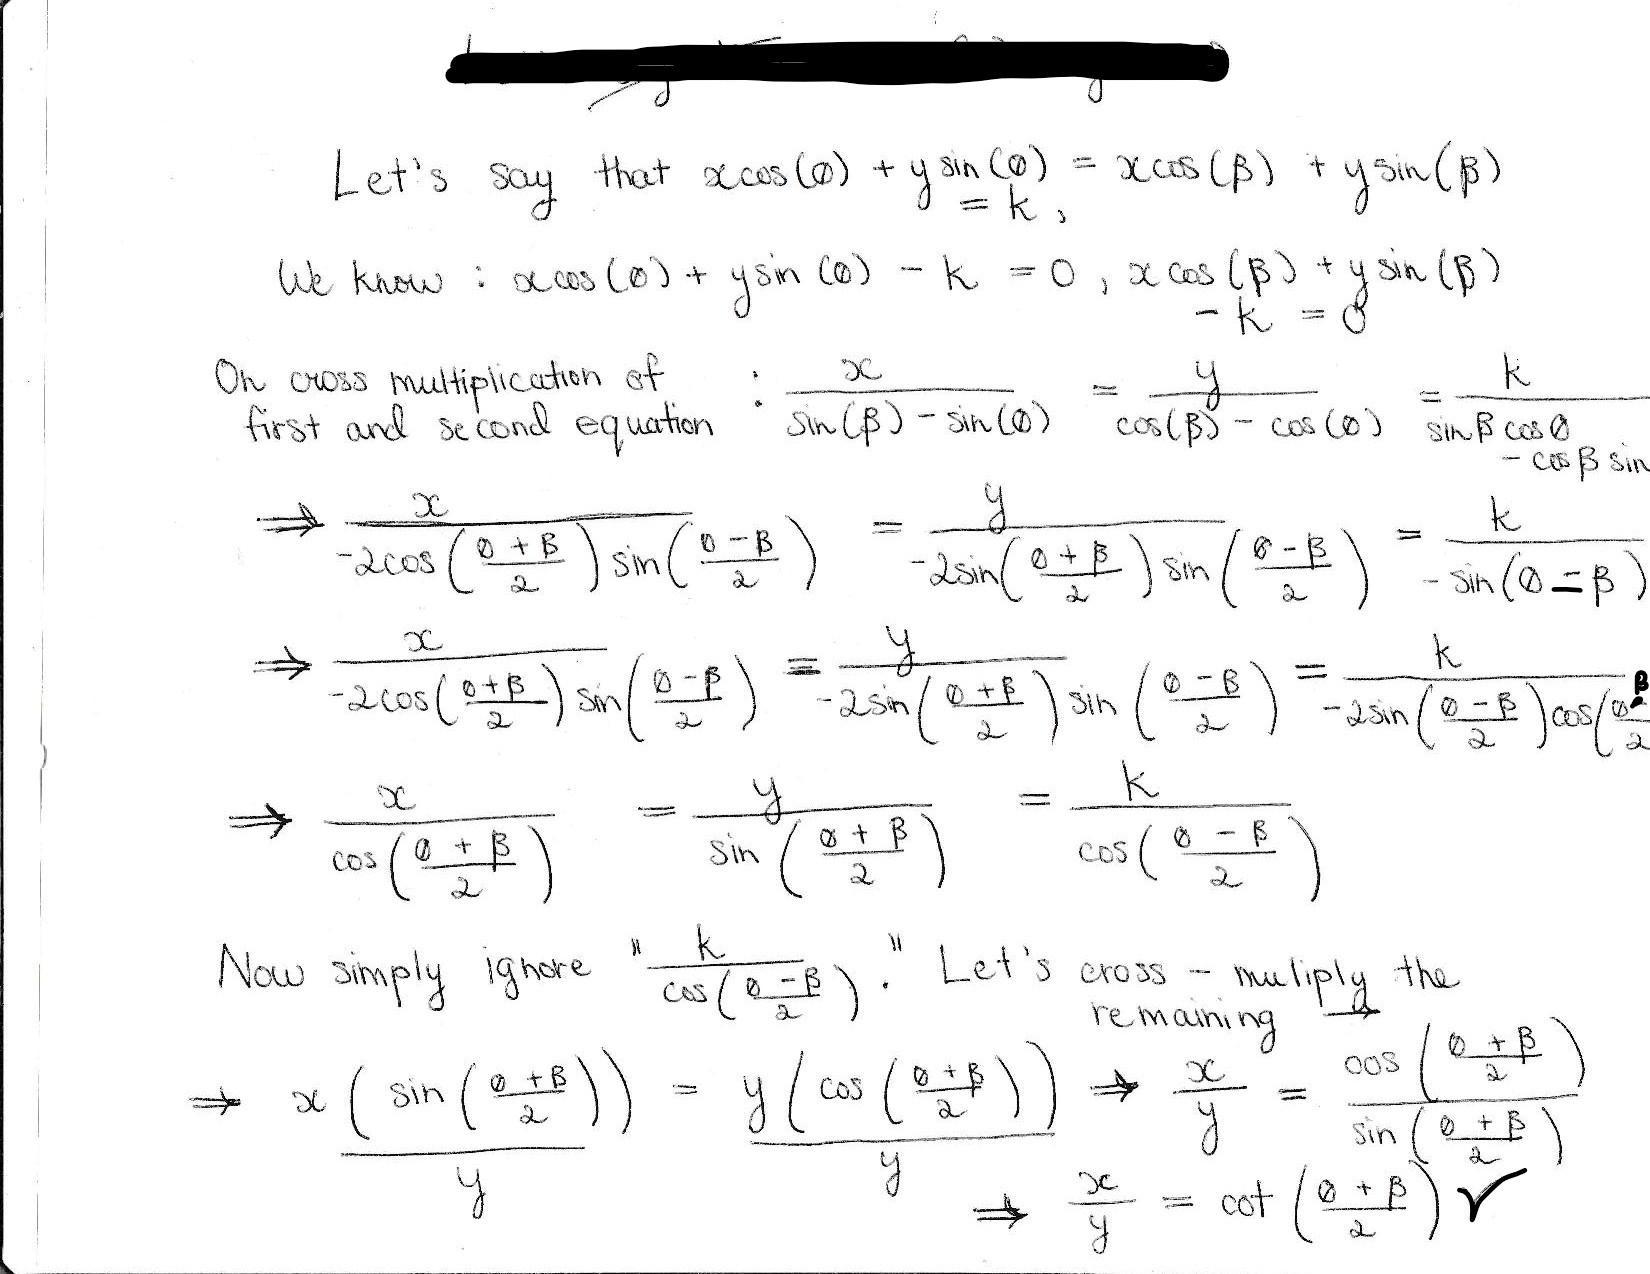 Let's say that xcos(Ø) + ysin(Ø) = xcos(β) + ysin(β)
= k,
We know : xcos(Ø) + ysin(Ø) - k = 0, xcos(β) + ysin(β)
- k = 0
On cross multiplication of first and second equation : x/(sin(β) - sin(Ø)) = y/(cos(β) - cos(Ø)) = k/(sinβ cosØ - cosβ sin
⇒ x/(-2cos((Ø + β)/2) sin((Ø - β)/2)) = y/(-2sin((Ø + β)/2) sin((Ø - β)/2)) = k/(-sin(Ø - β))
⇒ x/(-2cos((Ø + β)/2) sin((Ø - β)/2)) = y/(-2sin((Ø + β)/2) sin((Ø - β)/2)) = k/(-2sin((Ø - β)/2) cos((Ø - β)/2
⇒ x/cos((Ø + β)/2) = y/sin((Ø + β)/2) = k/cos((Ø - β)/2)
Now simply ignore "k/cos((Ø - β)/2)." Let's cross - muliply the
remaining →
⇒ x(sin((Ø + β)/2))/y = y(cos((Ø + β)/2))/y ⇒ x/y = cos((Ø + β)/2)/sin((Ø + β)/2)
⇒ x/y = cot((Ø + β)/2) ✓